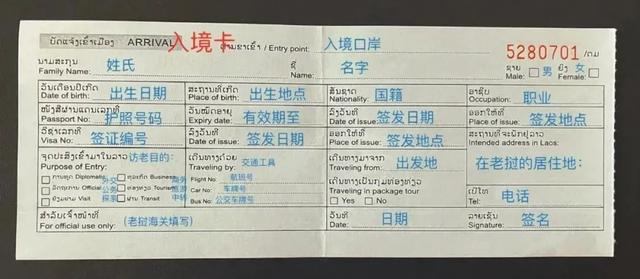 ບັດແຈ້ງເຂົ້າເມືອງ ARRIVAL 入境卡 ດ່ານຂາເຂົ້າ / Entry point: 入境口岸 5280701 /ຕມ
ນາມສະກຸນ
Family Name: 姓氏
ຊື່
Name: 名字
ຊາຍ
Male: 男
ຍິງ
Female: 女
ວັນເດືອນປີເກີດ
Date of birth: 出生日期
ສະຖານທີ່ເກີດ
Place of birth: 出生地点
ສັນຊາດ
Nationality: 国籍
ອາຊີບ
Occupation: 职业
ໜັງສືຜ່ານແດນເລກທີ
Passport No: 护照号码
ວັນໝົດອາຍຸ
Expiry date: 有效期至
ລົງວັນທີ
Date of issue: 签发日期
ອອກໃຫ້ທີ່
Place of issue: 签发地点
ວີຊາເລກທີ
Visa No: 签证编号
ລົງວັນທີ
Date of issue: 签发日期
ອອກໃຫ້ທີ່
Place of issue: 签发地点
ສະຖານທີ່ພັກຢູ່ລາວ
Intended address in Laos:
在老挝的居住地:
ຈຸດປະສົງເຂົ້າມາໃນລາວ 访老目的:
Purpose of Entry:
ການທູດ Diplomatic 外交 ທຸລະກິດ Business 商务
ລັດຖະການ Official 公务 ທ່ອງທ່ຽວ Tourism 旅游
ຢ້ຽມຢາມ Visit 探亲 ຜ່ານ Transit 中转
ເດີນທາງດ້ວຍ
Traveling by: 交通工具
Flight No: 航班号
Car No: 车牌号
Bus No: 公交车牌号
ເດີນທາງມາຈາກ
Traveling from: 出发地
ເດີນທາງເປັນກຸ່ມທ່ອງທ່ຽວ
Traveling in package tour
Yes No
ເບີໂທ
Tel: 电话
ສຳລັບເຈົ້າໜ້າທີ່
For official use only: (老挝海关填写)
ວັນທີ
Date: 日期
ລາຍເຊັນ
Signature: 签名